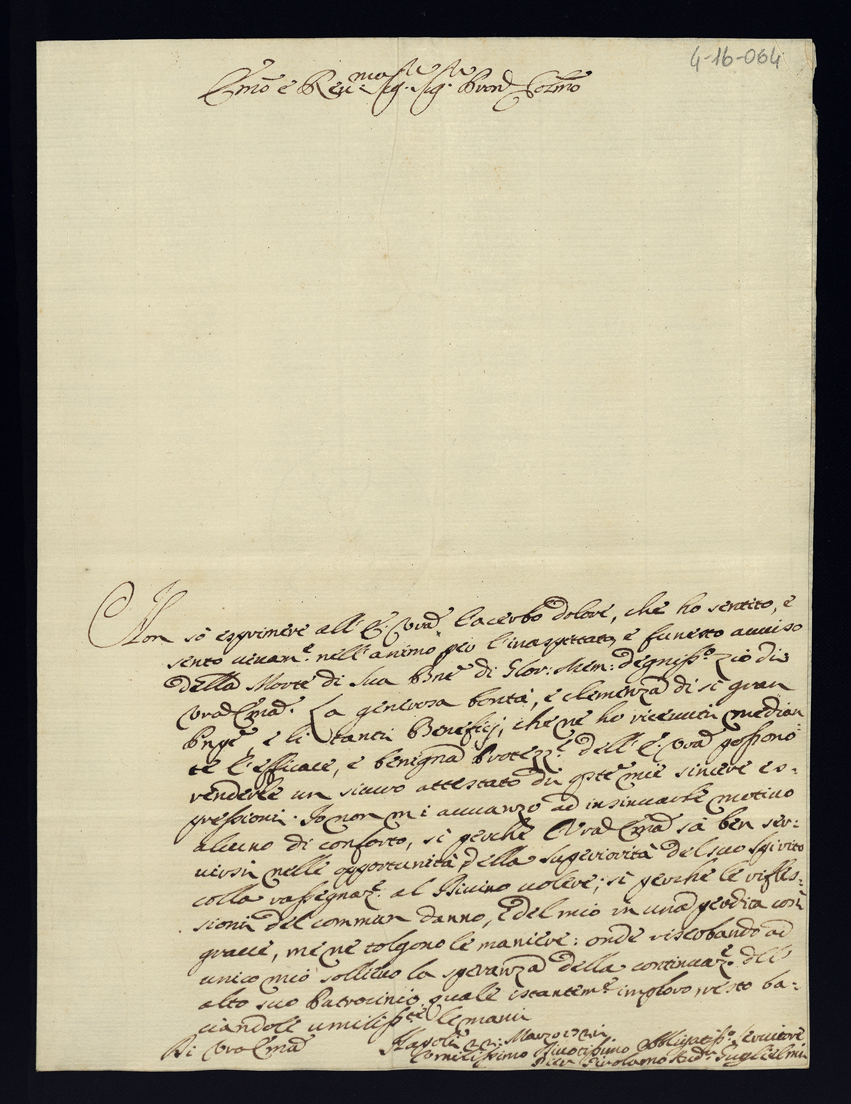 4-16-064
Emo e Reumo Sig. Sig. Pron Colmo
Non sò esprimere all' E. Vra l'acerbo dolore, che hò sentito, e
sento uiuam.e nell'animo per l'inaspettato, e funesto auuiso
della Morte di Sua Bne di Glor: Mem: degniss.o Zio di
Vra Emza. La generosa bontà, e clemenza di sì gran
Pnpe, e li tanti Beneficij, che ne hò riceuuti median:
te l'efficace, e benigna Protez.e dell' E. Vra possono
renderle un sicuro attestato di qste mie sincere es:
pressioni. Io non mi auuanzo ad insinuarle motiuo
alcuno di conforto, sì perche Vra Emza sà ben ser:
uirsi nelle opportunità della superiorità del suo spirito
colla rassegnaz.e al Diuino uolere; sì perche le rifles:
sioni del commun danno, e del mio in una perdita così
graue, me ne tolgono le maniere: onde riserbando ad
unico mio sollieuo la speranza della continuaz.e dell'
alto suo Patrocinio, quale istantem.e imploro, resto ba:
ciandole umiliss.te le mani
Di Vra Emza
Napoli 22: Marzo
Vmilissimo Diuotissimo Obligatiss.o Seruitore
Pier Girolamo Guglielmi